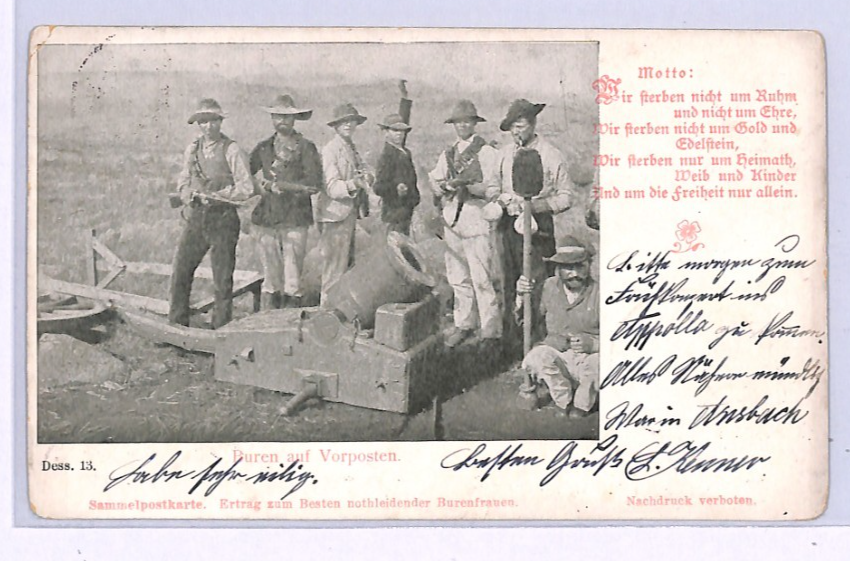 Motto:
Wir sterben nicht um Ruhm
und nicht um Ehre,
Wir sterben nicht um Gold und
Edelstein,
Wir sterben nur um Heimath,
Weib und Kinder
Und um die Freiheit nur allein.
Bitte morgen zum
Frühkonzert ins
Appolla zu kommen.
Alles Nähere mündlich
War in Ansbach
Besten Gruß
Habe sehr eilig.
Dess. 13.
Buren auf Vorposten.
Sammelpostkarte. Ertrag zum Besten nothleidender Burenfrauen.
Nachdruck verboten.